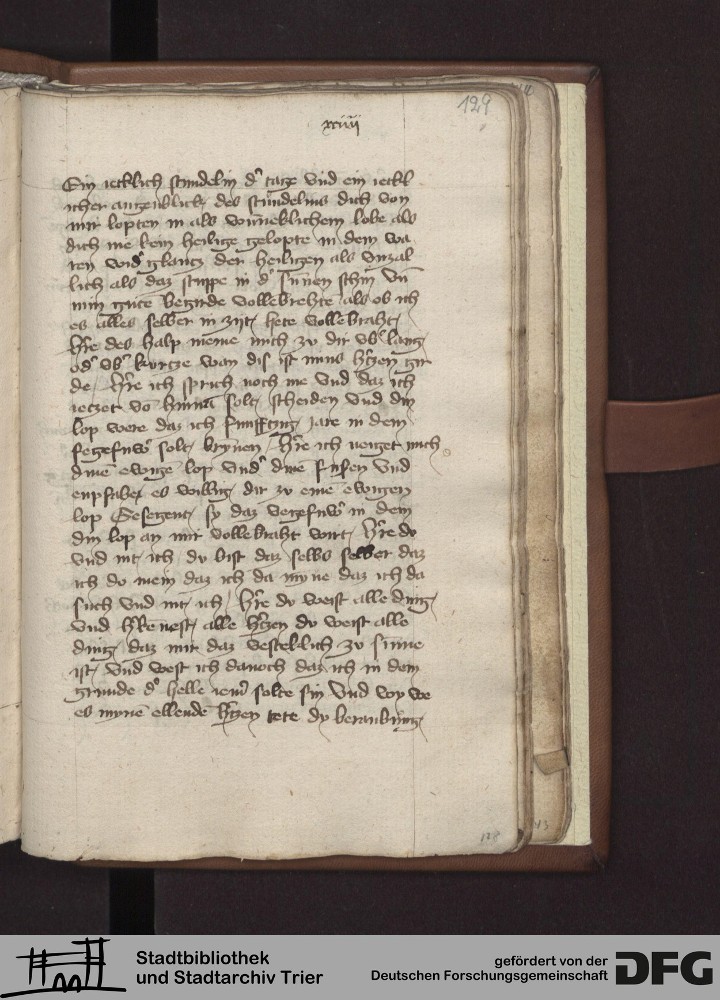 129
xxiiij
Ein iecklich stundelin d' tage vnd ein ieckl
icher augenblick des stundelins dich von
mir lopten in als vnneklichem lobe als
dich ie kein heilige gelopte in dem wa
ren vnd' glantz der heiligen als vnzal
lich als daz stuppe in d' sunnen schin vn̄
min gute begirde vollebrehte als ob ich
es alles selber in zijt hete vollebraht
h're des halp neme mich zv dir vb' lang
od' vb' kurtze wan dis ist mins h'tzen gir
de h're ich sprich noch me vnd daz ich
ieczet vō hinnā solt scheiden vnd din
lop were daz ich funfftzig iare in dem
fegefuw' solt brynnen h're ich neiget mich
dinē ewige lop vnd' dine fusen vnd
enpfahe es willig dir zv eine ewigen
lop Gesegent sy daz vegefuw' in dem
din lop an mir vollebraht wirt h're du
vnd nit ich dv bist daz selbs selber daz
ich do mein daz ich da myne daz ich da
such vnd nit ich h're dv weist alle ding
vnd h'kennest alle h'tzen dv weist alle
ding daz mir daz vesteklich zv sinne
ist vnd west ich danoch daz ich in dem
grunde d' helle iem' solte sin vnd wy we
es mynē ellendē h'tzen tete dy beraubung
128
Stadtbibliothek
und Stadtarchiv Trier
gefördert von der
Deutschen Forschungsgemeinschaft
DFG